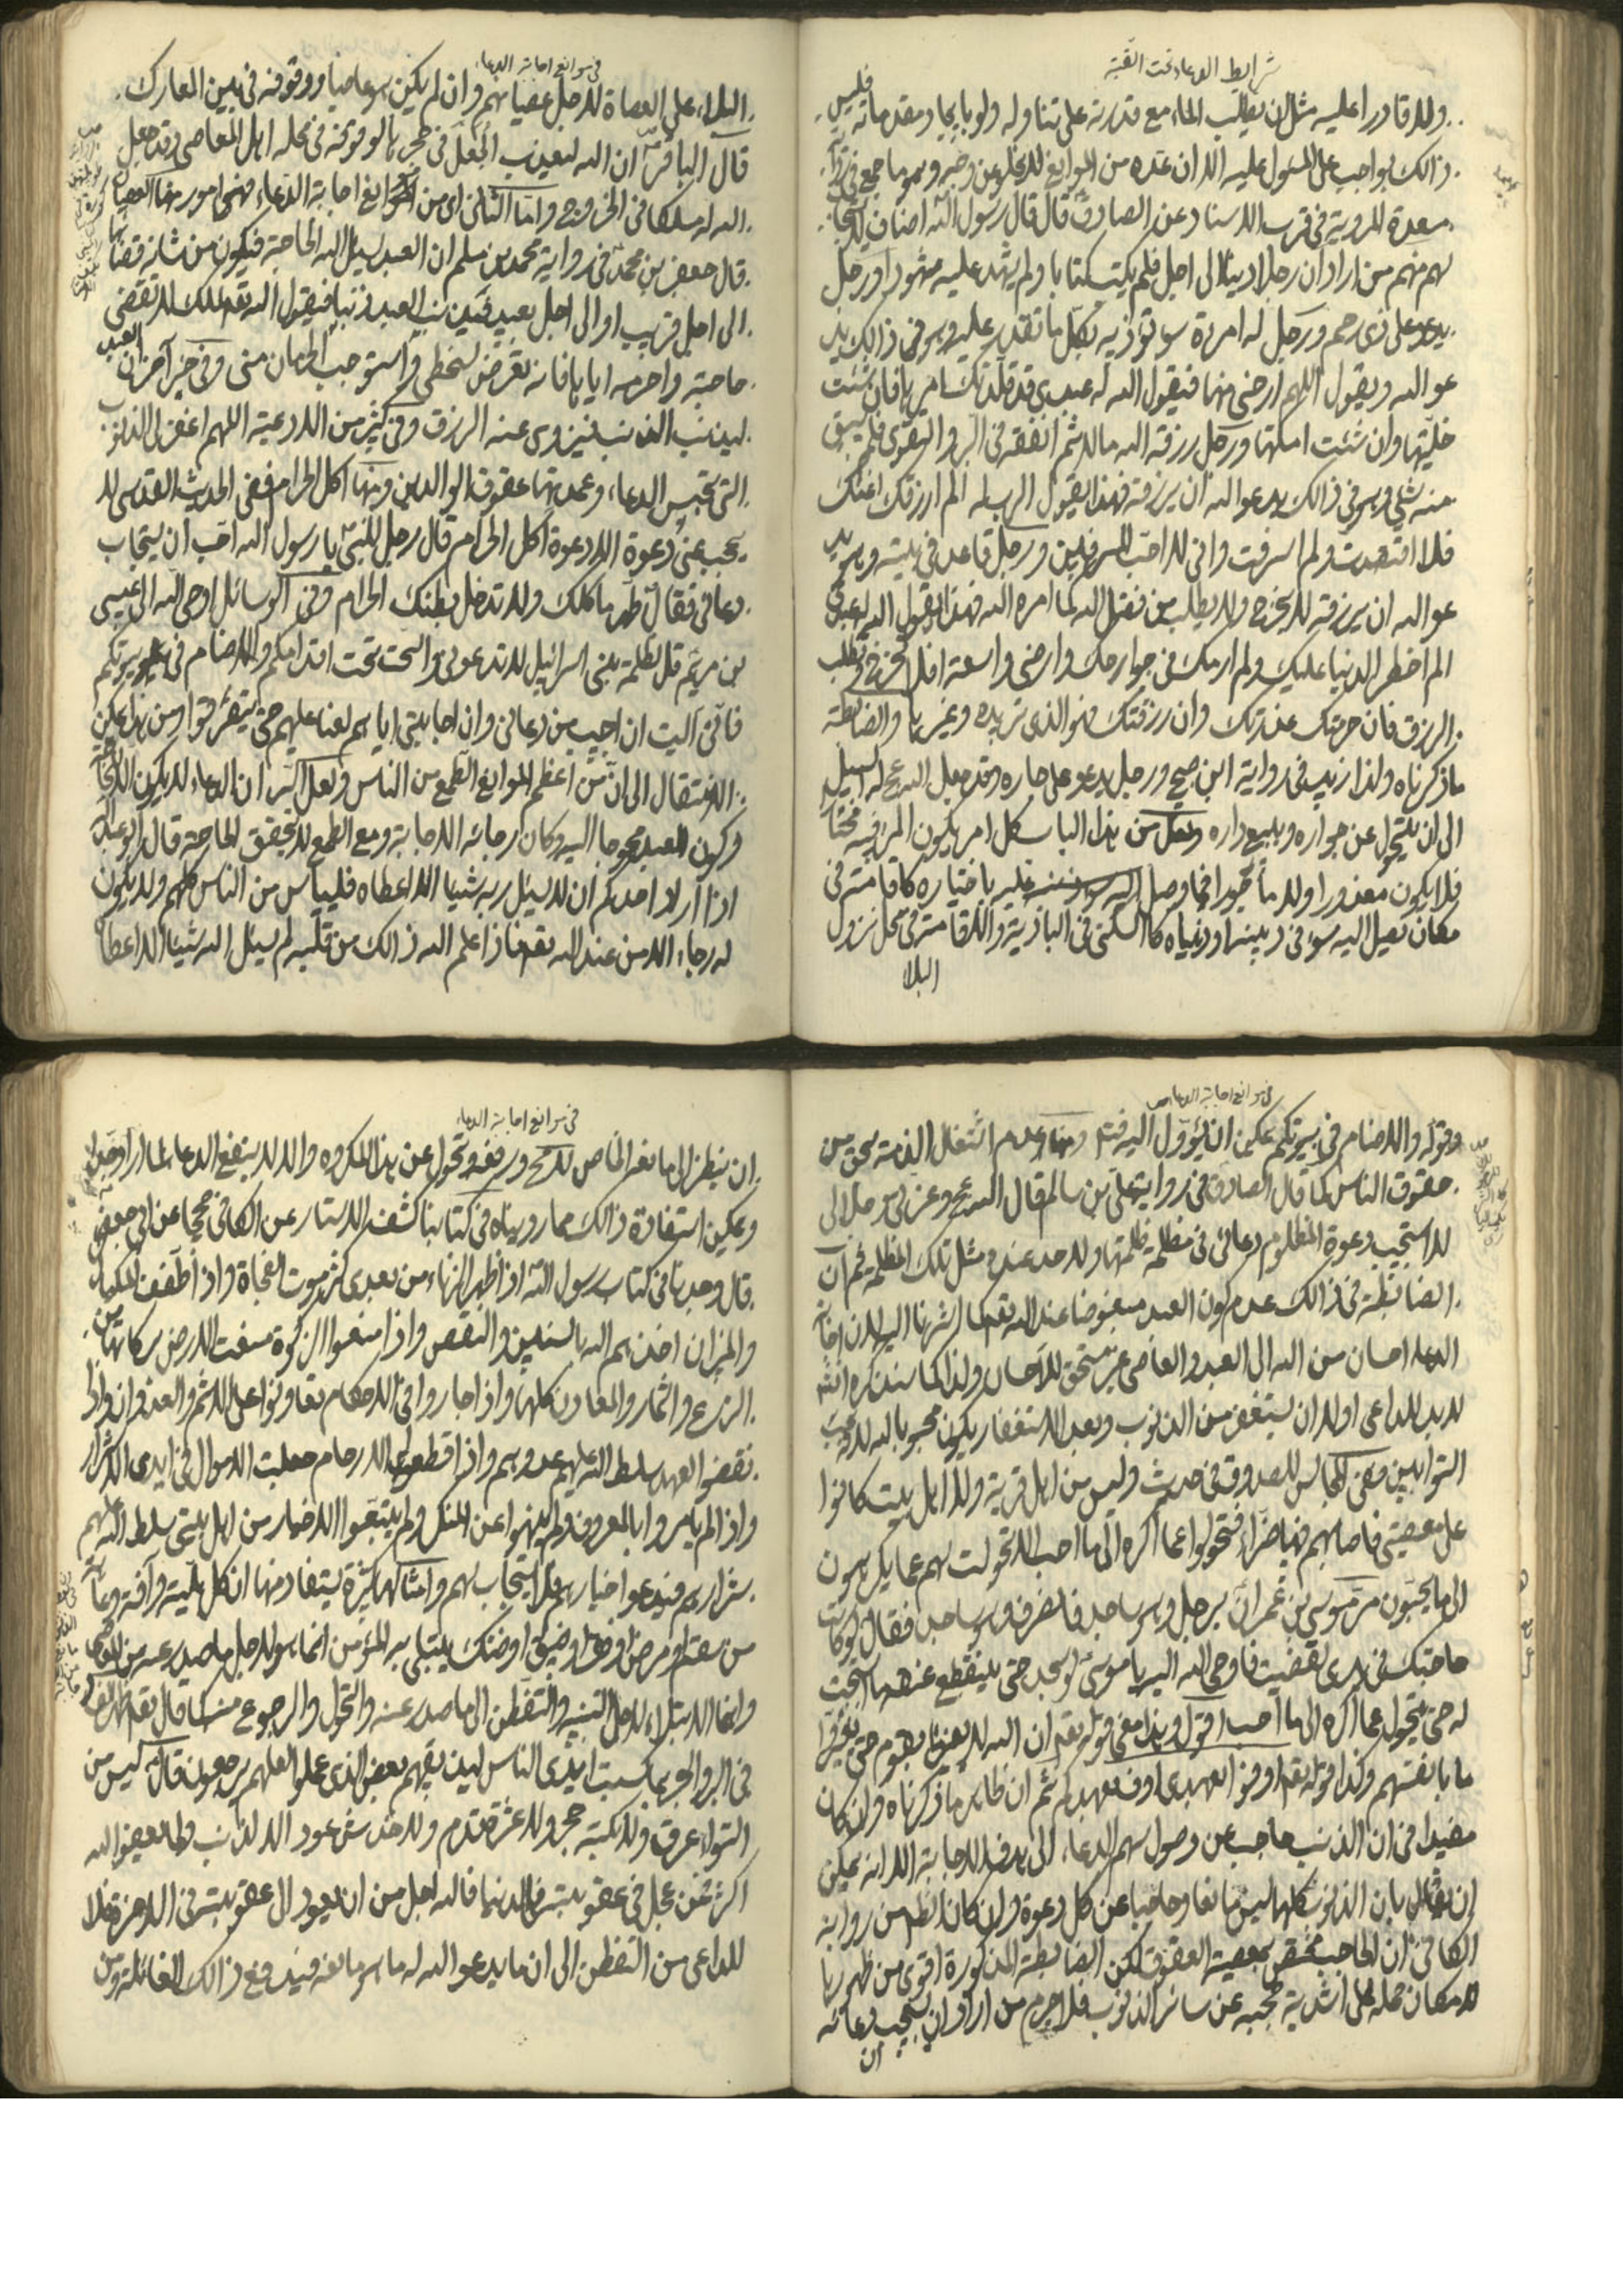 شرايط الدعاء تحت القبة
ولا قادرا عليه مثل ان يطلب الماء مع قدرته على تناوله ولو بايجاد مقدماته فليس
ذالك بواجب على المسئول عليه الا ان عده من الموانع لا يخلو عن وجه وهو ما جمع في
مسعدة المروية في قرب الاسناد عن الصادق قال قال رسول الله اصناف لا يستجاب
لهم منهم من ادان رجلا دينا الى اجل فلم يكتب كتابا ولم يشهد عليه شهودا ورجل
يدعو على ذي رحم ورجل له امرءة سوء تؤذيه بكل ما تقدر عليه وهو في ذالك يد
عو الله ويقول اللهم ارحني منها فيقول الله له عبدي قد قلدتك امرها فان شئت
خليتها وان شئت امسكتها ورجل رزقه الله مالا ثم انفقه في البر والتقوى فلم يبق
منه شئ وهو في ذالك يدعو الله ان يرزقه فهذا يقول الرب له الم ارزقك اغنك
فلا اقتصدت ولم اسرفت واني لا احب المسرفين ورجل قاعد في بيته وهو يد
عو الله ان يرزقه لا يخرج ولا يطلب من فضل الله كما امره الله فهذا يقول الله له عبدي
الم احظر الدنيا عليك ولم ارمك في جوارحك وارضي واسعة افلا تخرج وتطلب
الرزق فان حرمتك عذرتك وان رزقتك فهو الذي تريده وغيرها والضابطة
ما ذكرناه ولذا زيد في رواية ابن صبيح ورجل يدعو على جاره وقد جعل الله ع له السبيل
الى ان يتحول عن جواره ويبيع داره ولعل من هذا الباب كل امر يكون المرء فيه مختارا
فلا يكون معذورا ولا مأجورا فيما وصل اليه باختياره كاقامته في
مكان يصل اليه سوء في دينه او دنياه كالسكنى في البادية والاقامة في محل نزول
البلا
في موانع اجابة الدعاء
البلاء على العصاة لاجل عصيانهم وان لم يكن هو عاصيا ووقوفه في بين المعارك
قال الباقر ان الله ليعذب الجعل في جحرها لوقوفه في محله اهل المعاصي وقد جعل
الله له مسلكا في الخروج واما الثاني اي من الموانع اجابة الدعاء فهي امور منها العصيان
قال جعفر بن محمد في رواية محمد بن مسلم ان العبد ليسئل الله الحاجة فيكون من شانه قضائها
الى اجل قريب او الى اجل بعيد فيذنب العبد ذنبا فيقول الله تعه للملك لا تقضى
حاجته واحرمه اياها فانه تعرض لسخطي واستوجب الحرمان مني وفي خبر آخر ان العبد
ليذنب الذنب فيزوى عنه الرزق وفي كثير من الادعية اللهم اغفر لي الذنوب
التي تحبس الدعاء وعمدتها عقوق الوالدين ومنها اكل الحرام ففي الحديث القدسي لا
يحجب عني دعوة الا دعوة اكل الحرام قال رجل للنبي يا رسول الله احب ان يستجاب
دعائي فقال طهر ماكلك ولا تدخل بطنك الحرام وفي الوسائل اوحى الله الى عيسى
بن مريم قل لظلمة بني اسرائيل لا تدعوني والسحت تحت اقدامكم والاصنام في بيوتكم
فاني آليت ان اجيب من دعاني وان اجابتي اياهم لعنا عليهم حتى يتفرقوا ومن هنا يمكن
الانتقال الى ان من اعظم الموانع الطمع من الناس ولعل السر ان الدعاء لا يكون الا لحاجة
وكون العبد محوجا اليه وكان رجائه الاجابة ومع الطمع لا يتحقق الحاجة قال ابو عبد الله
اذا اراد احدكم ان لا يسئل ربه شيئا الا اعطاه فلييأس من الناس كلهم ولا يكون
له رجاء الا من عند الله تعه فاذا علم الله ذالك من قلبه لم يسئل الله شيئا الا اعطاه
في موانع اجابة الدعاء
وقوله والاصنام في بيوتكم يمكن ان يؤول اليه ومنها عدم اشتغال الذمة بحق من
حقوق الناس كما قال الصادق في رواية علي بن سالم قال الله ع وعزتي وجلالي
لا استجيب دعوة المظلوم دعائي في مظلمة ظلمتها ولاحد عنده مثل تلك المظلمة ثم ان
الضابطة في ذالك عدم كون العبد مبغوضا عند الله تعه كما اشرنا اليه لان اجابة
الدعاء احسان من الله الى العبد والعاصي غير مستحق للاحسان ولذا كما سنذكره انشه
لا بد للداعي اولا ان يستغفر من الذنوب وبعد الاستغفار يكون محبوبا لله لانه يحب
التوابين وفي المجالس للصدوق في حديث وليس من اهل قرية ولا اهل بيت كانوا
على معصيتي فاصابهم فيها ضراء فتحولوا عما اكره الى ما احب الا تحولت لهم عما يكرهون
الى ما يحبون مر موسى بن عمران برجل وهو ساجد فانصرف وهو ساجد فقال لو كانت
حاجتك في يدي لقضيت فاوحى الله اليه يا موسى لو سجد حتى ينقطع عنقه ما استجبت
له حتى يتحول عما اكره الى ما احب اقول وهذا معنى قوله تعه ان الله لا يغير ما بقوم حتى يغيروا
ما بانفسهم وكذا قوله تعه اوفوا بعهدي اوف بعهدكم ثم ان ظاهر ما ذكرناه وان كان
مفيدا في ان الذنب حاجب عن وصول سهم الدعاء الى هدف الاجابة الا انه يمكن
ان يقال بان الذنوب كلها ليس مانعا وحاجبا عن كل دعوة وان كان الظاهر من رواية
الكافي ان الحاجب مختص بمعصية العقوق لكن الضابطة المذكورة اقوى من ظهورها
لامكان حمله على اشدية حجبه عن سائر الذنوب فلا جرم من اراد ان يستجيب دعائه
ان
في موانع اجابة الدعاء
ان ينظر الى مانعه الخاص ويرفعه وتحول عن هذا المكروه والا لا ينفع الدعاء لما اراد وجدا
ويمكن استفادة ذالك مما رويناه في كتابنا كشف الاستار عن الكافي عن ابي جعفر
قال وجدنا في كتاب رسول الله اذا ظهر الزناء من بعدي كثر موت الفجأة واذا طفف المكيال
والميزان اخذهم الله بالسنين والنقص واذا منعوا الزكوة منعت الارض بركاتها من
الزرع والثمار والمعادن كلها واذا جاروا في الاحكام تعاونوا على الاثم والعدوان واذا
نقضوا العهد سلط الله عليهم عدوهم واذا قطعوا الارحام جعلت الاموال في ايدي الاشرار
واذا لم يامروا بالمعروف ولم ينهوا عن المنكر ولم يتبعوا الاخيار من اهل بيتي سلط الله عليهم
شرارهم فيدعوا خيارهم فلا يستجاب لهم وامثالها كثيرة يستفاد منها ان كل بلية وآفة وعاهة
من سقم او مرض او ضيق او ضنك يبتلى به المؤمن انما هو لاجل ما صدر عنه من
وانما الابتلاء لاجل التنبه والتفطن الى ما صدر عنه والتحول والرجوع عنه كما قال تعه ظهر الفساد
في البر والبحر بما كسبت ايدي الناس ليذيقهم بعض الذي عملوا لعلهم يرجعون قال ليس من
التواء عرق ولا نكبة حجر ولا عثرة قدم ولا خدش عود الا لذنب ولما يعفو الله
اكثر فمن عجل في عقوبته في الدنيا فالله اجل من ان يعود الى عقوبته في الاخرة فلا
للداعي من التفطن الى ان ما يدعو الله له ما هو مانعه فيدفع ذالك الغائلة ومن